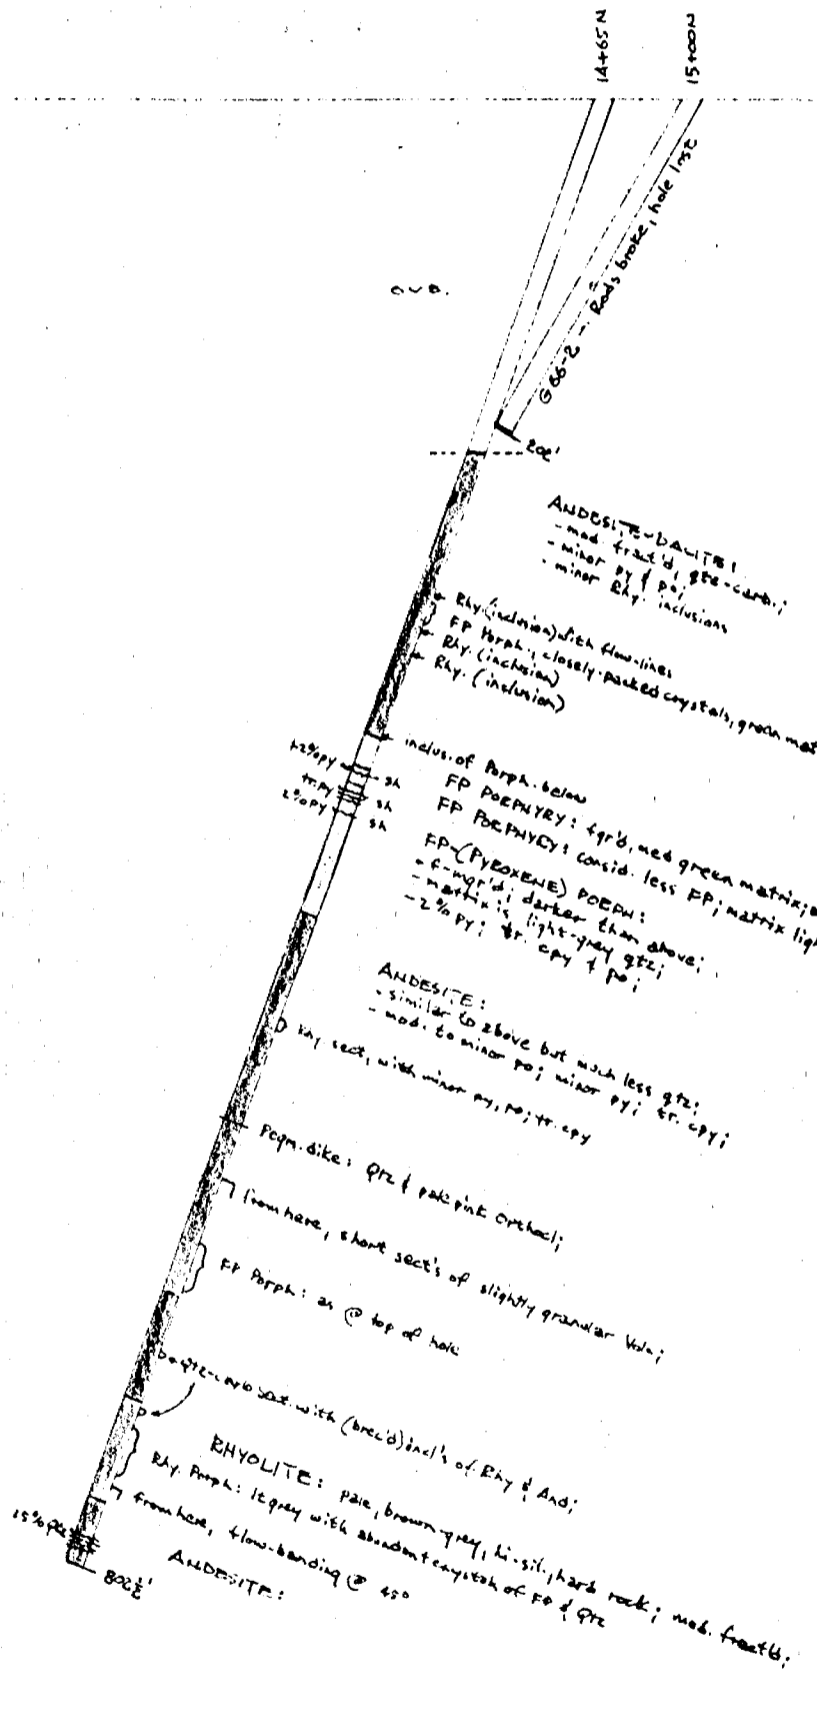 14+65N
15+00N
G66-2 - Rods broke, hole lost
OVB.
202'
ANDESITE-DACITE:
- mod. fract'd, qtz-carb.;
- minor py & po;
- minor Rhy. inclusions
Rhy. (inclusion) with flow-lines
FP Porph., closely-packed crystals, green mat
Rhy. (inclusion)
Rhy. (inclusion)
inclus. of Porph. below
+2% py
sh
tr. py
sh
2% py
sh
FP PORPHYRY: fgr'd, med green matrix;
FP PORPHYRY: consid. less FP; matrix lig
FP-(PYROXENE) PORPH:
- f-mgr'd; darker than above;
- matrix is light-grey qtz;
- 2% py; tr. cpy & po;
ANDESITE:
- similar to above but much less qtz;
- mod. to minor po; minor py; tr. cpy;
Rhy. sect, with minor py, po; tr. cpy
Pegm. dike: Qtz & pale pink orthocl;
from here, short sect's of slightly granular Volc;
FP Porph: as @ top of hole
Qtz-carb sect. with (brec'd) incl's of Rhy & And;
RHYOLITE: pale, brown-grey, hi-sil., hard rock; mod. fract'd;
Rhy. Porph: lt grey with abundant crystals of FP & Qtz
from here, flow-banding @ 45°
15% Qtz
ANDESITE:
802½'